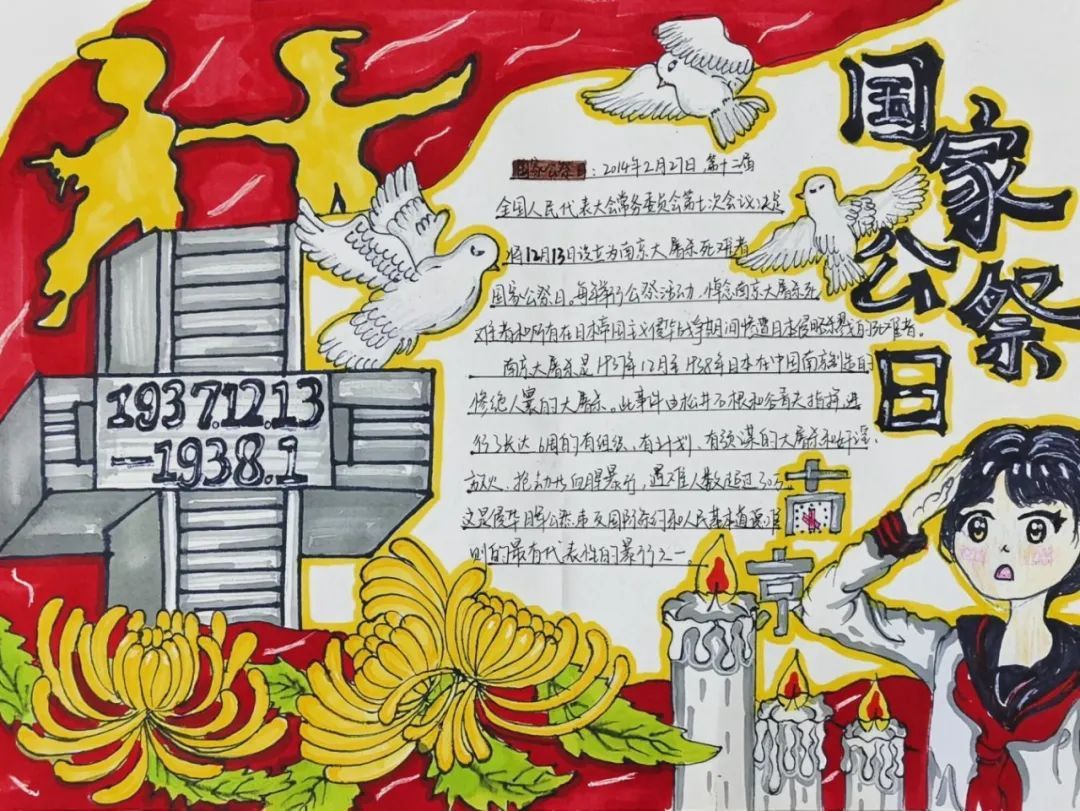 国家公祭日
国家公祭日：2014年2月27日，第十二届
全国人民代表大会常务委员会第七次会议决定
将12月13日设立为南京大屠杀死难者
国家公祭日。每年举行公祭活动，悼念南京大屠杀死
难者和所有在日本帝国主义侵华战争期间惨遭日本侵略杀戮的死难者。
南京大屠杀是1937年12月至1938年日本在中国南京制造的
惨绝人寰的大屠杀。此事件由松井石根和谷寿夫指挥，进
行了长达6周的有组织、有计划、有预谋的大屠杀和奸淫、
放火、抢劫等血腥暴行，遇难人数超过30万。
这是侵华日军公然违反国际条约和人民基本道德准
则的最有代表性的暴行之一。
1937.12.13
—1938.1
南京